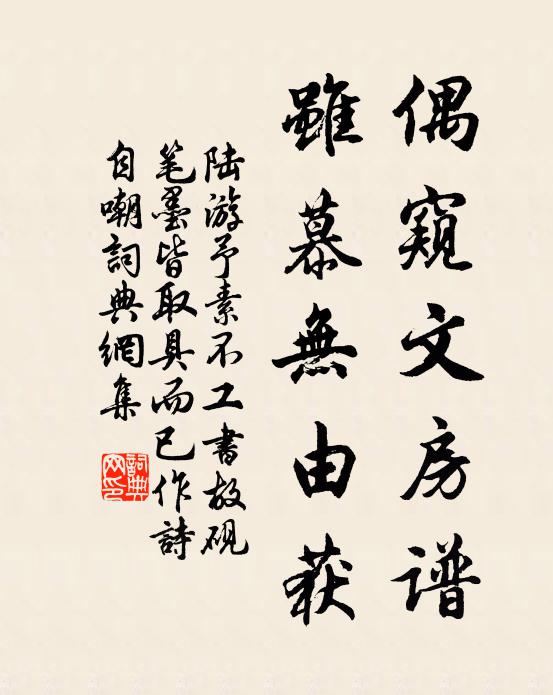 偶窺文房谱
雖慕無由获
陆游予素不工書故硯
笔墨皆取具而已作詩
自嘲詞典網集
詞典网印